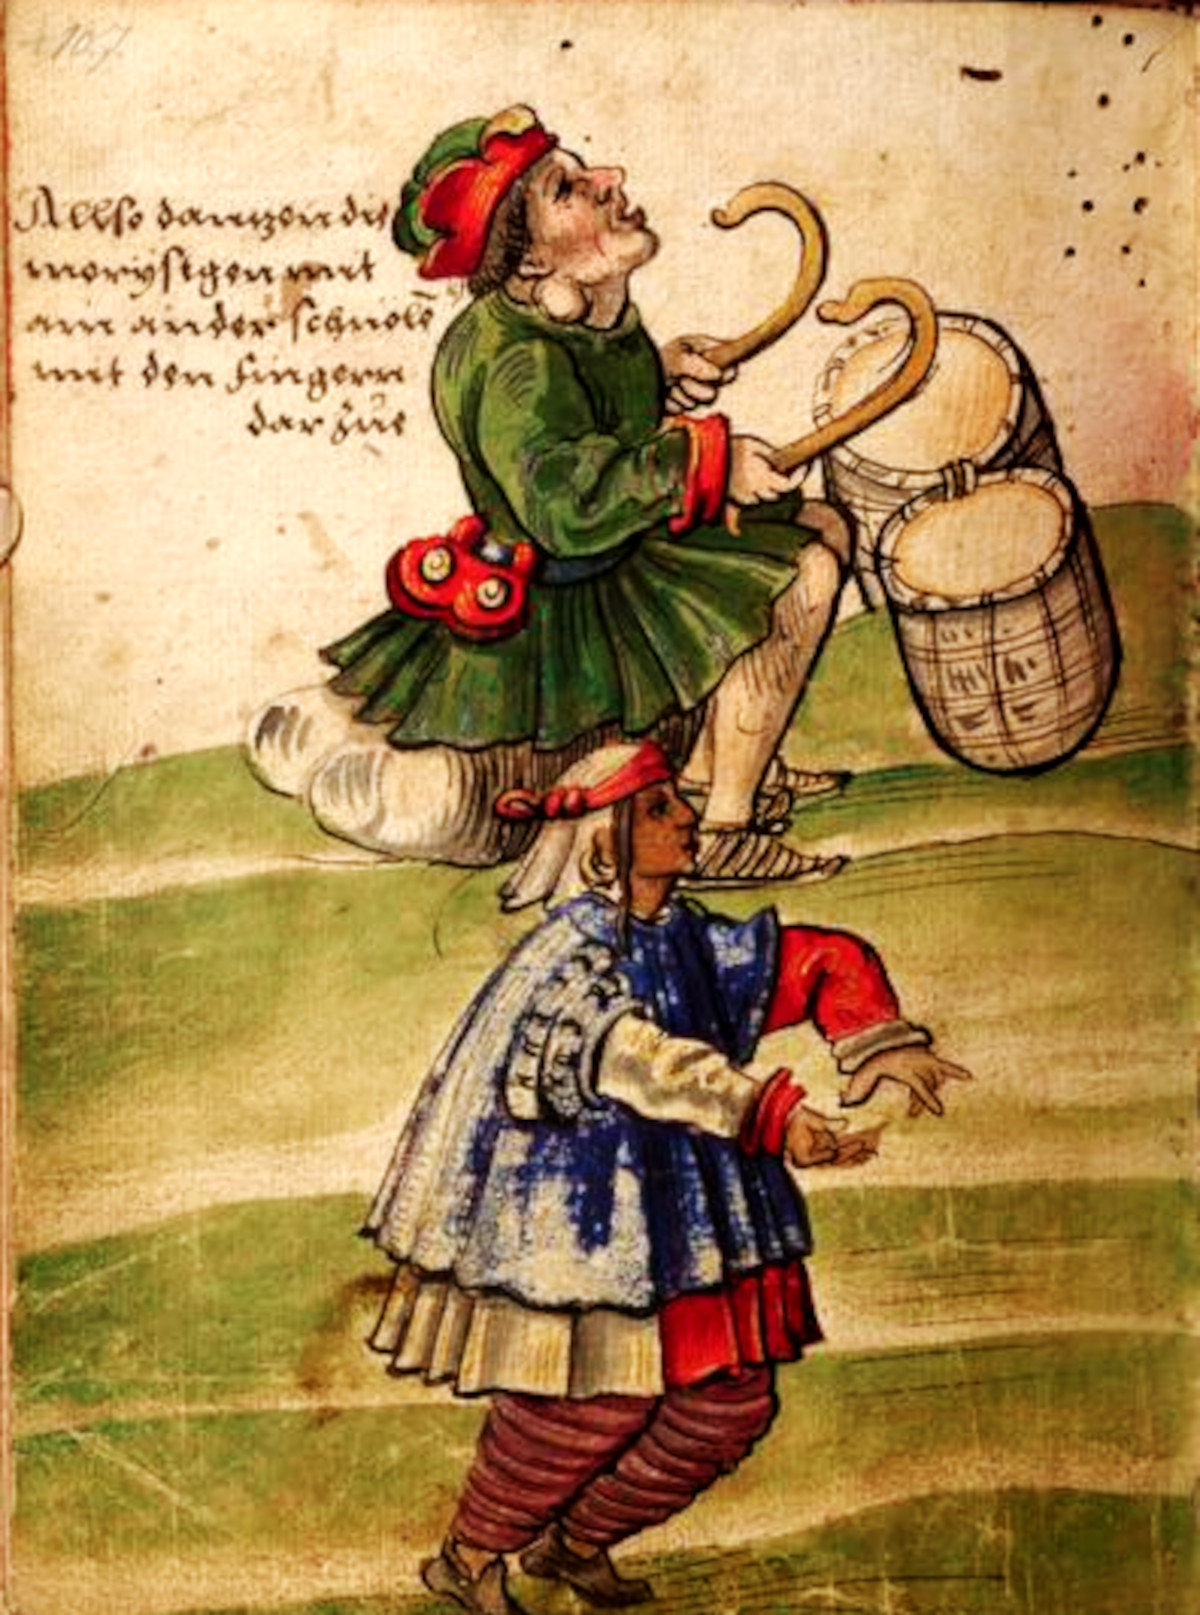 107
Allso danzen die
moryskgen mit
ain ander schnölē
mit den fingern
dar zue